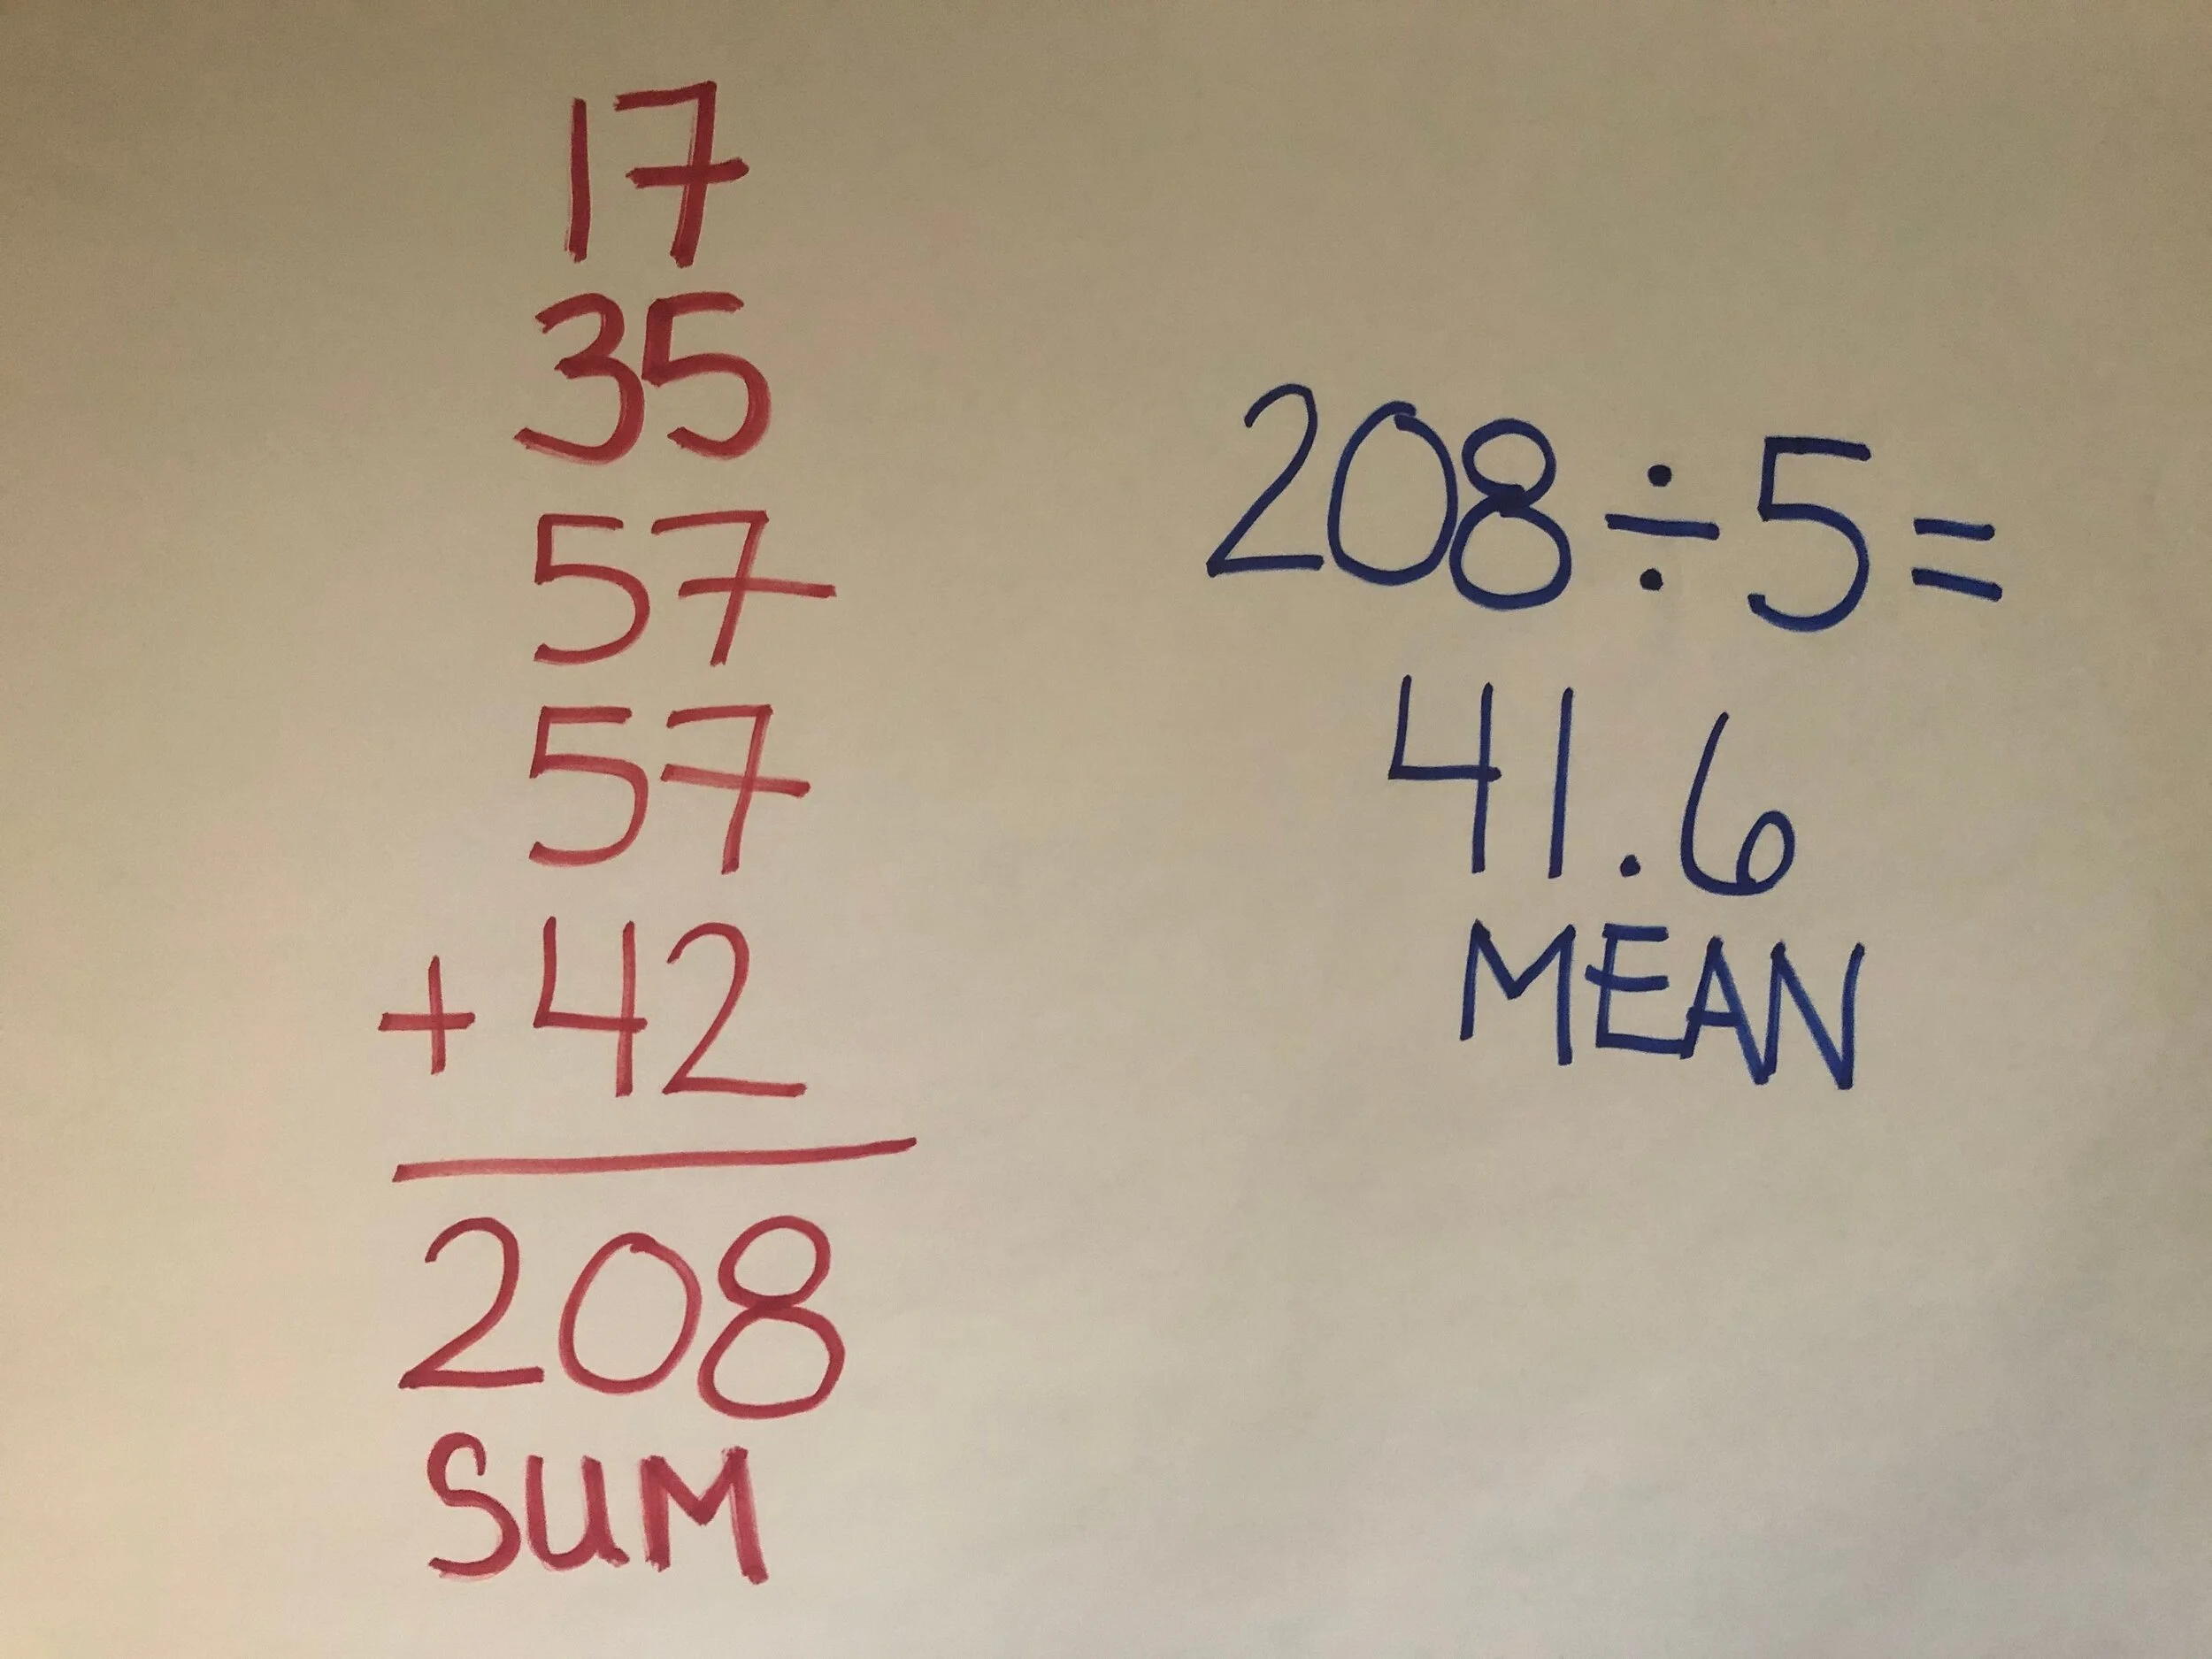 17
35
57
57
+ 42
208
SUM
208÷5=
41.6
MEAN